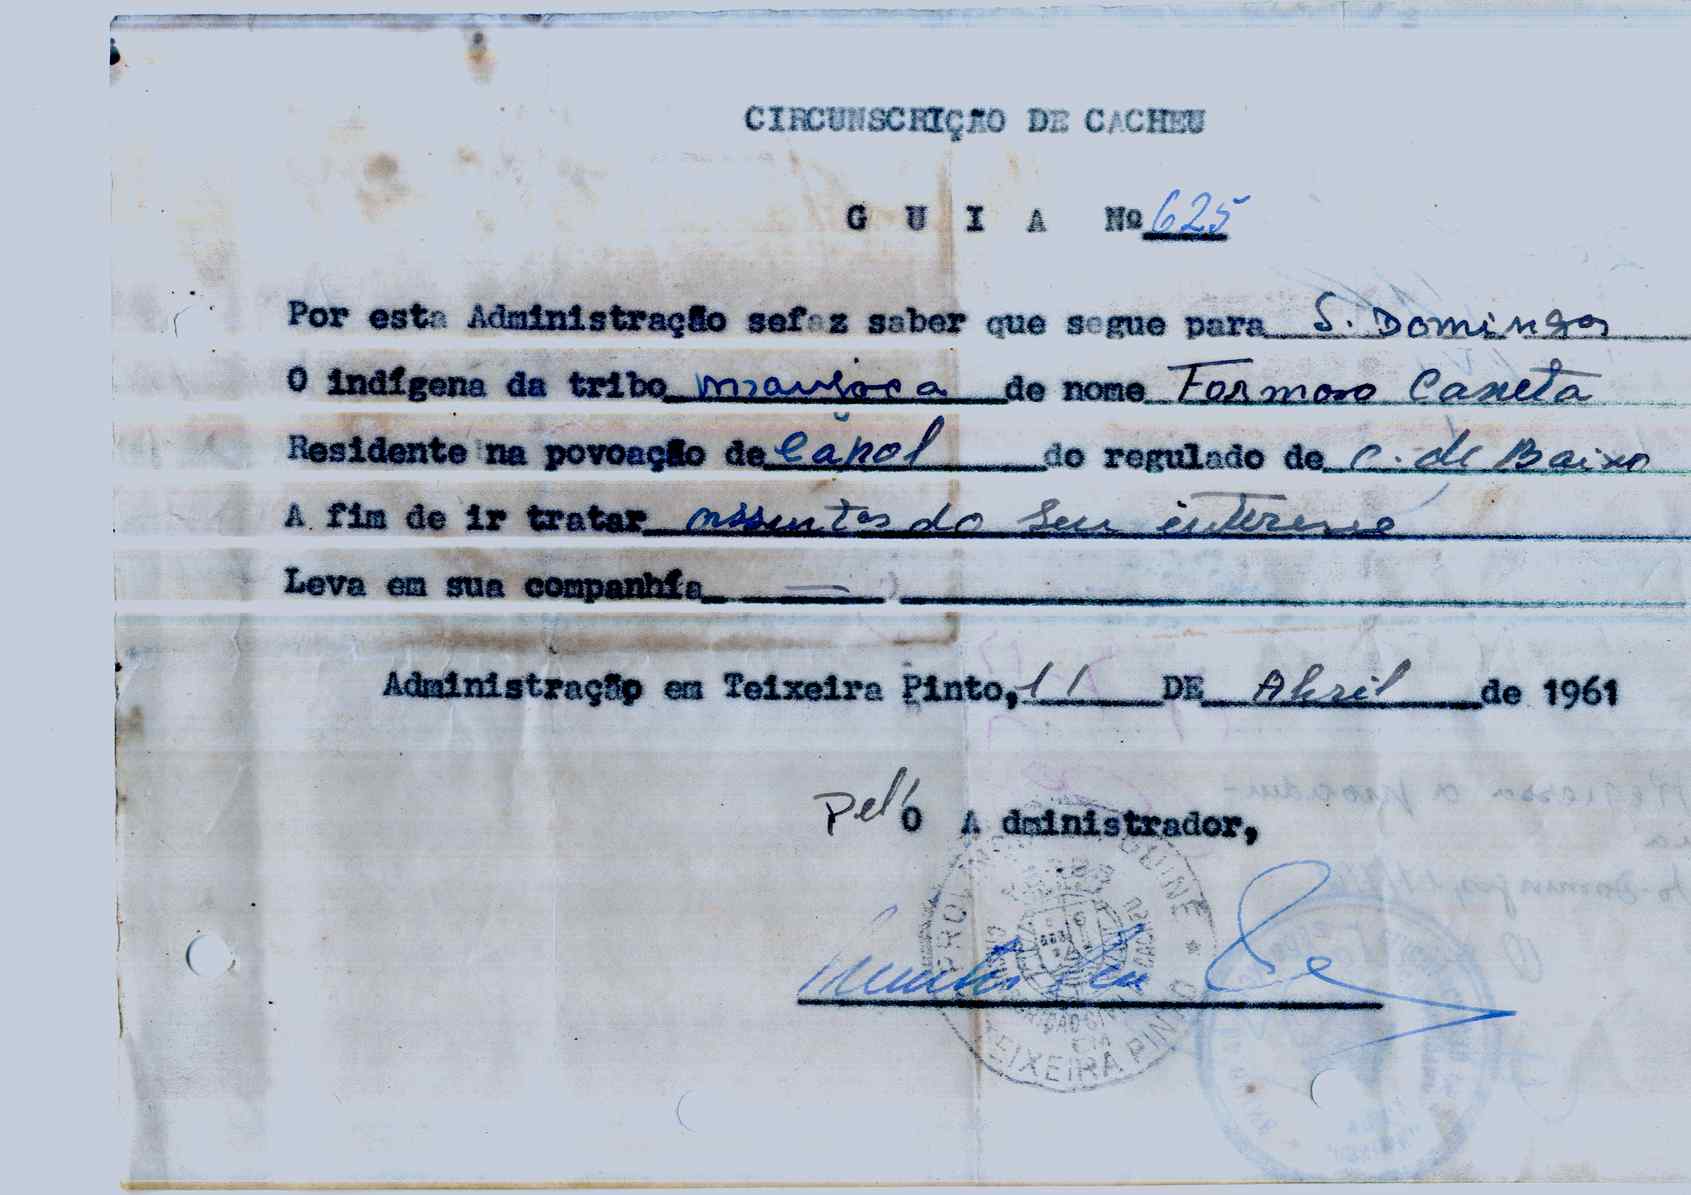 CIRCUNSCRIÇÃO DE CACHEU
G U I A Nº 625
Por esta Administração sefaz saber que segue para S. Domingos
O indígena da tribo manjoca de nome Formoso Caneta
Residente na povoação de Capol do regulado de C. de Baixo
A fim de ir tratar assuntos do seu interesse
Leva em sua companhía —
Administração em Teixeira Pinto, 11 DE Abril de 1961
Pel'O A dministrador,
PROVINCIA DA GUINE * TEIXEIRA PINTO